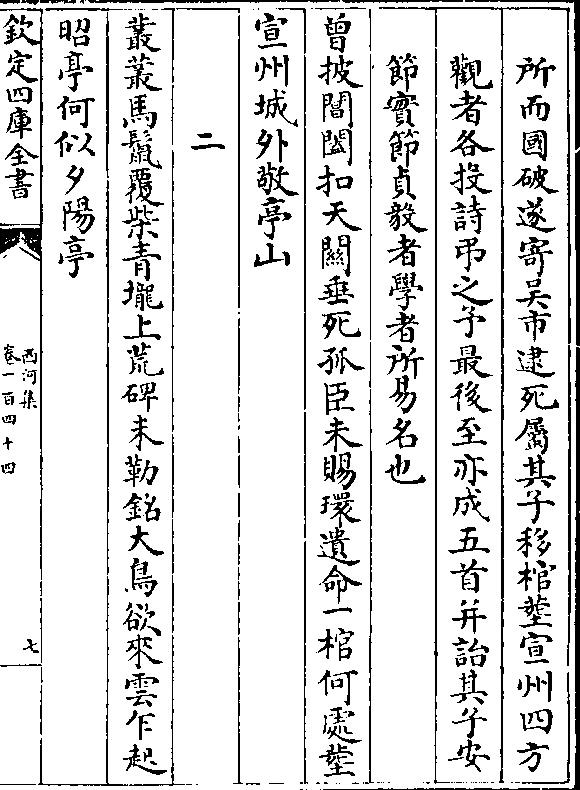 所而國破遂寄吳市逮死屬其子移棺塟宣州四方
觀者各投詩弔之予最後至亦成五首并詒其子安
節實節貞毅者學者所易名也
曾披閶闔扣天關垂死孤臣未賜環遺命一棺何處塟
宣州城外敬亭山
二
叢叢馬鬛覆柴青壠上荒碑未勒銘大鳥欲來雲乍起
昭亭何似夕陽亭
欽定四庫全書
西河集
卷一百四十四
七